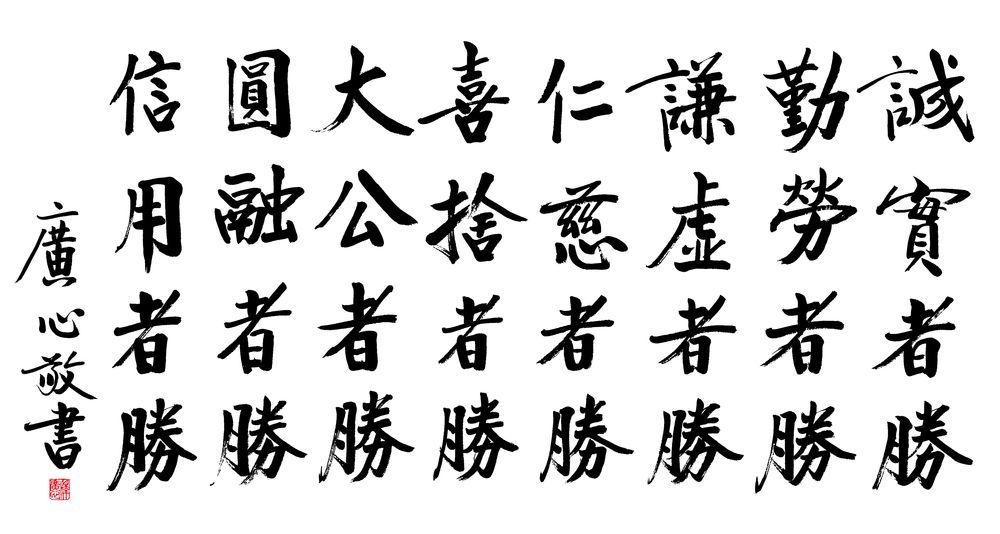 誠實者勝
勤勞者勝
謙虛者勝
仁慈者勝
喜捨者勝
大公者勝
圓融者勝
信用者勝
廣心敬書